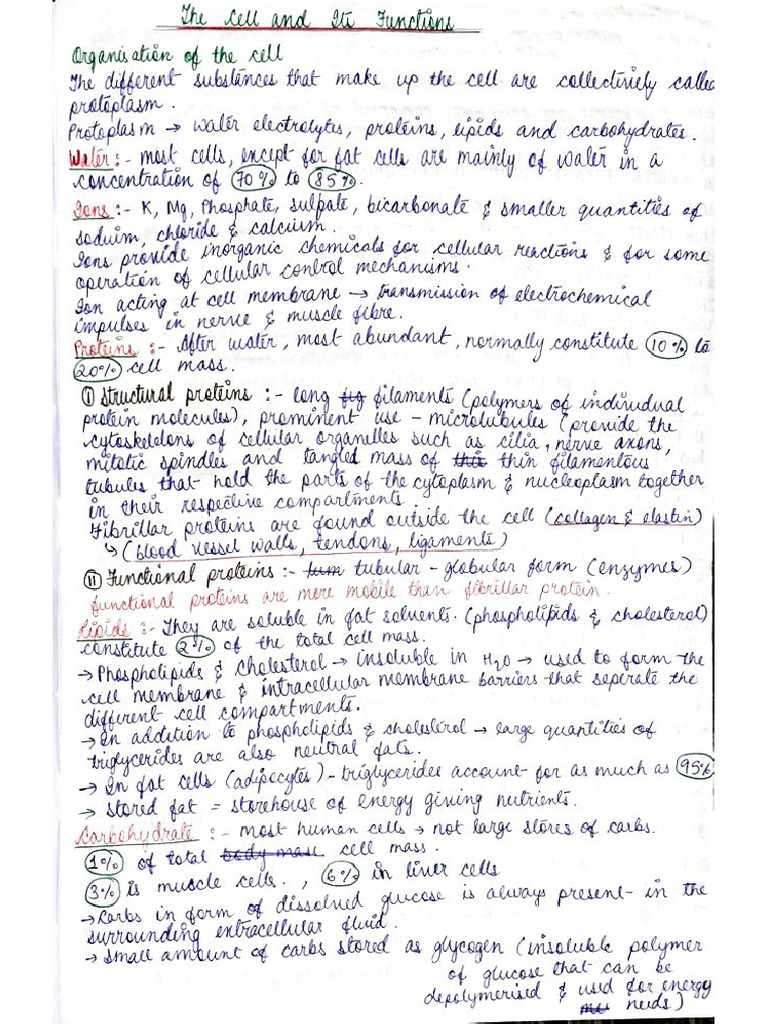 The Cell and Its Functions
Organisation of the cell
The different substances that make up the cell are collectively called
protoplasm.
Protoplasm → water electrolytes, proteins, lipids and carbohydrates.
Water :- most cells, except for fat cells are mainly of water in a
concentration of 70% to 85%.
Ions :- K, Mg, Phosphate, sulpate, bicarbonate & smaller quantities of
soduim, chloride & calcium.
Ions provide inorganic chemicals for cellular reactions & for some
operation of cellular control mechanisms.
Ion acting at cell membrane → transmission of electrochemical
impulses in nerve & muscle fibre.
Proteins :- After water, most abundant, normally constitute 10% to
20% cell mass.
(i) Structural proteins :- long filaments (polymers of individual
protein molecules), prominent use - microtubules (provide the
cytoskeldons of cellular organelles such as cilia, nerve axons,
mitotic spindles and tangled mass of thin filamentous
tubules that hold the parts of the cytoplasm & nucleoplasm together
in their respective compartments.
Fibrillar proteins are found outside the cell (collagen & elastin)
↳ (blood vessel walls, tendons, ligaments)
(ii) Functional proteins :- tubular - globular form (enzymes)
functional proteins are more mobile than fibrillar protein.
Lipids :- They are soluble in fat solvents. (phospholipids & cholesterol)
constitute 2% of the total cell mass.
→ Phospholipids & cholesterol → insoluble in H2O → used to form the
cell membrane & intracellular membrane barriers that seperate the
different cell compartments.
→ In addition to phospholipids & cholesterol → large quantities of
triglycerides are also neutral fats.
→ In fat cells (adipocytes) - triglycerides account for as much as 95%
→ stored fat = storehouse of energy giving nutrients.
Carbohydrate :- most human cells → not large stores of carbs.
1% of total cell mass.
3% is muscle cells., 6% in liver cells
→ Carbs in form of dissolved glucose is always present - in the
surrounding extracellular fluid.
→ small amount of carbs stored as glycogen (insoluble polymer
of glucose that can be
depolymerised & used for energy
needs)